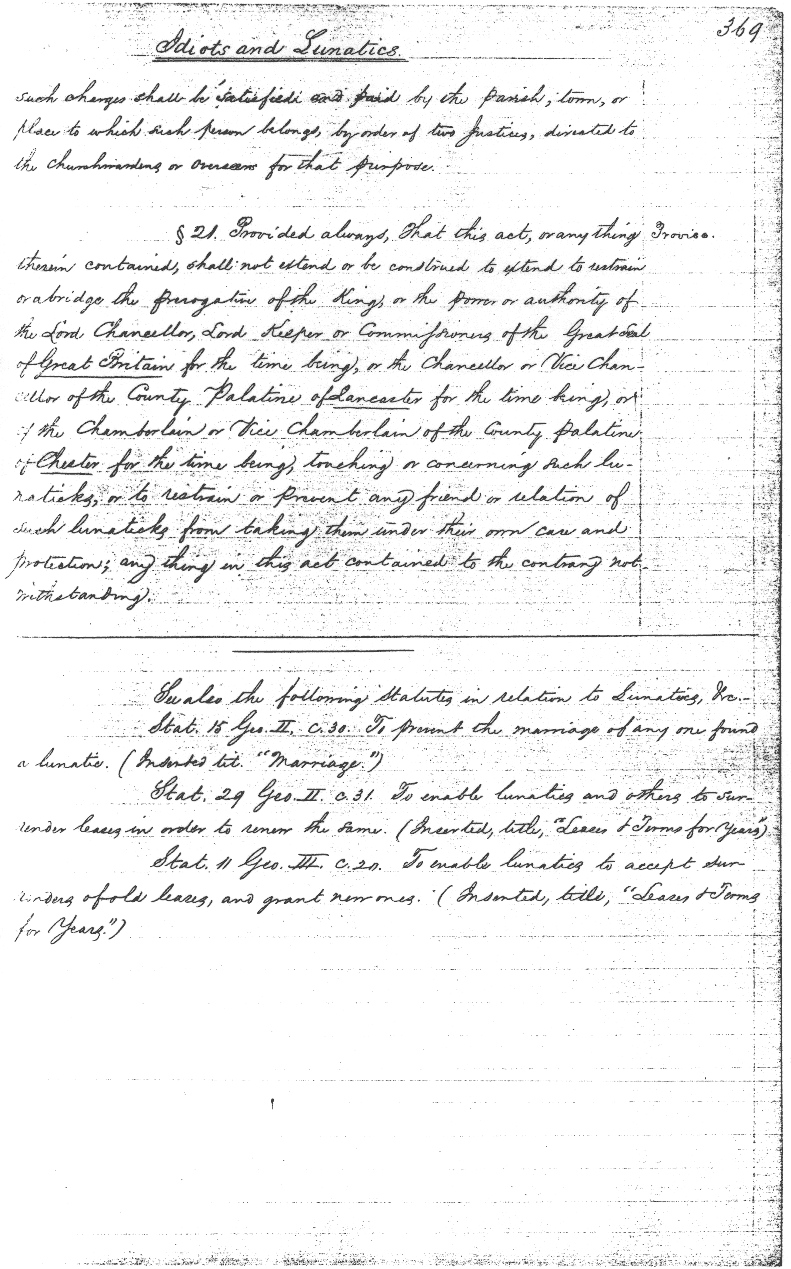 369
Idiots and Lunatics.
such charges shall be satisfied and paid by the parish, town, or
place to which such person belongs, by order of two Justices, directed to
the churchwardens or overseers for that purpose.
§ 21. Provided always, That this act, or any thing Proviso.
therein contained, shall not extend or be construed to extend to restrain
or abridge the prerogative of the King, or the power or authority of
the Lord Chancellor, Lord Keeper or Commissioners of the Great Seal
of Great Britain for the time being, or the Chancellor or Vice Chan-
cellor of the County Palatine of Lancaster for the time being, or
of the Chamberlain or Vice Chamberlain of the County Palatine
of Chester for the time being, touching or concerning such lu-
naticks, or to restrain or prevent any friend or relation of
such lunaticks from taking them under their own care and
protection; any thing in this act contained to the contrary not-
withstanding.
See also the following Statutes in relation to Lunatics, &c.-
Stat. 15 Geo. II. c. 30. To prevent the marriage of any one found
a lunatic. (Inserted tit. "Marriage.")
Stat. 29 Geo. II. c. 31. To enable lunatics and others to sur-
render leases in order to renew the same. (Inserted, title, "Leases & Terms for Years")
Stat. 11 Geo. III. c. 20. To enable lunatics to accept sur-
renders of old leases, and grant new ones. (Inserted, title, "Leases & Terms
for Years.")